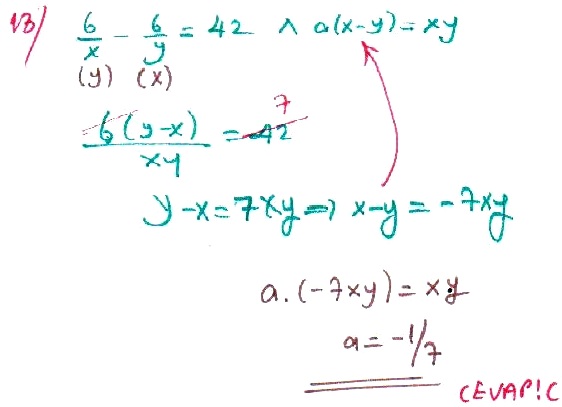 13/ 6/x - 6/y = 42 ∧ a(x-y) = xy
(y) (x)
6(y-x)/xy = 42 7
y-x = 7xy ⇒ x-y = -7xy
a.(-7xy) = xy
a = -1/7
CEVAP!C